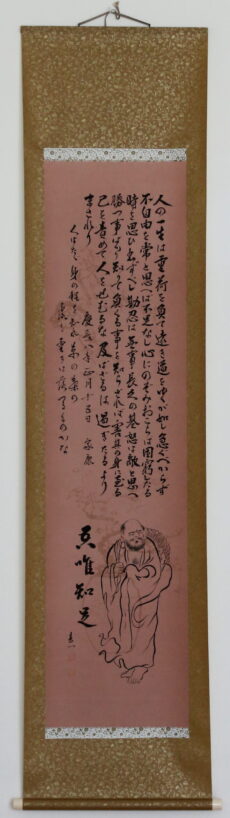 人の一生は重荷を負て遠き道をゆくが如し急ぐべからず
不自由を常と思へば不足なし心にのぞみおこらば困窮したる
時を思ひ出すべし勘忍は無事長久の基怒は敵と思へ
勝つ事ばかり知りて負くる事を知らざれば害其の身に至る
己を責めて人を責むるな及ばざるは過ぎたるより
まされり
慶長八年正月十五日 家康
人はただ身の程を知れ草の葉の
露も重きは落つるものかな
吾唯知足